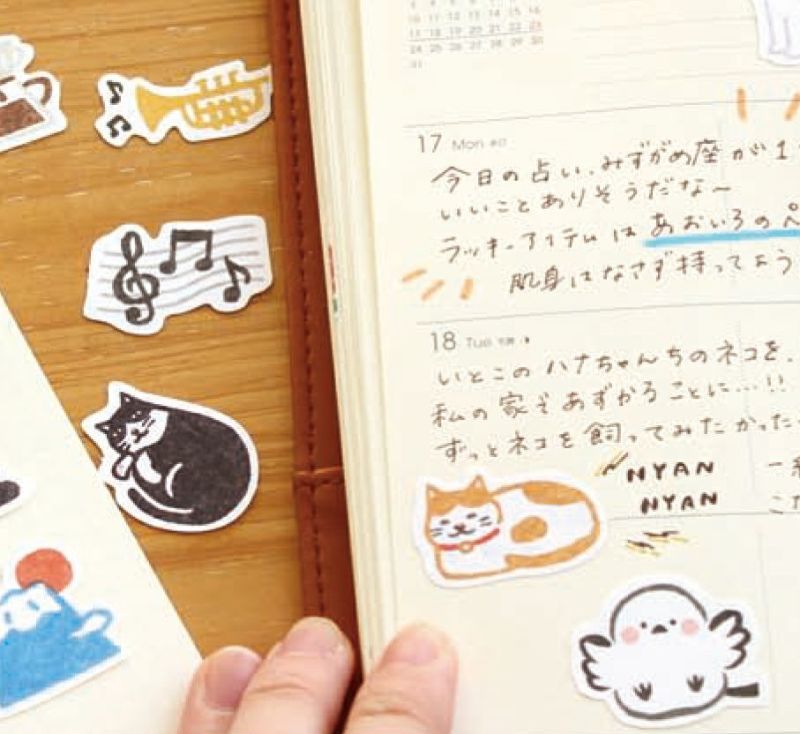 10 11 12 13 14 15 16
17 18 19 20 21 22 23
24 25 26 27 28 29 30
31
17 Mon
今日の占い、みずがめ座が1
いいことありそうだな〜
ラッキーアイテムはあおいろのペ
肌身はなさず持ってよう
18 Tue
いとこのハナちゃんちのネコを、
私の家であずかることに…!!
ずっとネコを飼ってみたかった
NYAN
NYAN
一緒
こた